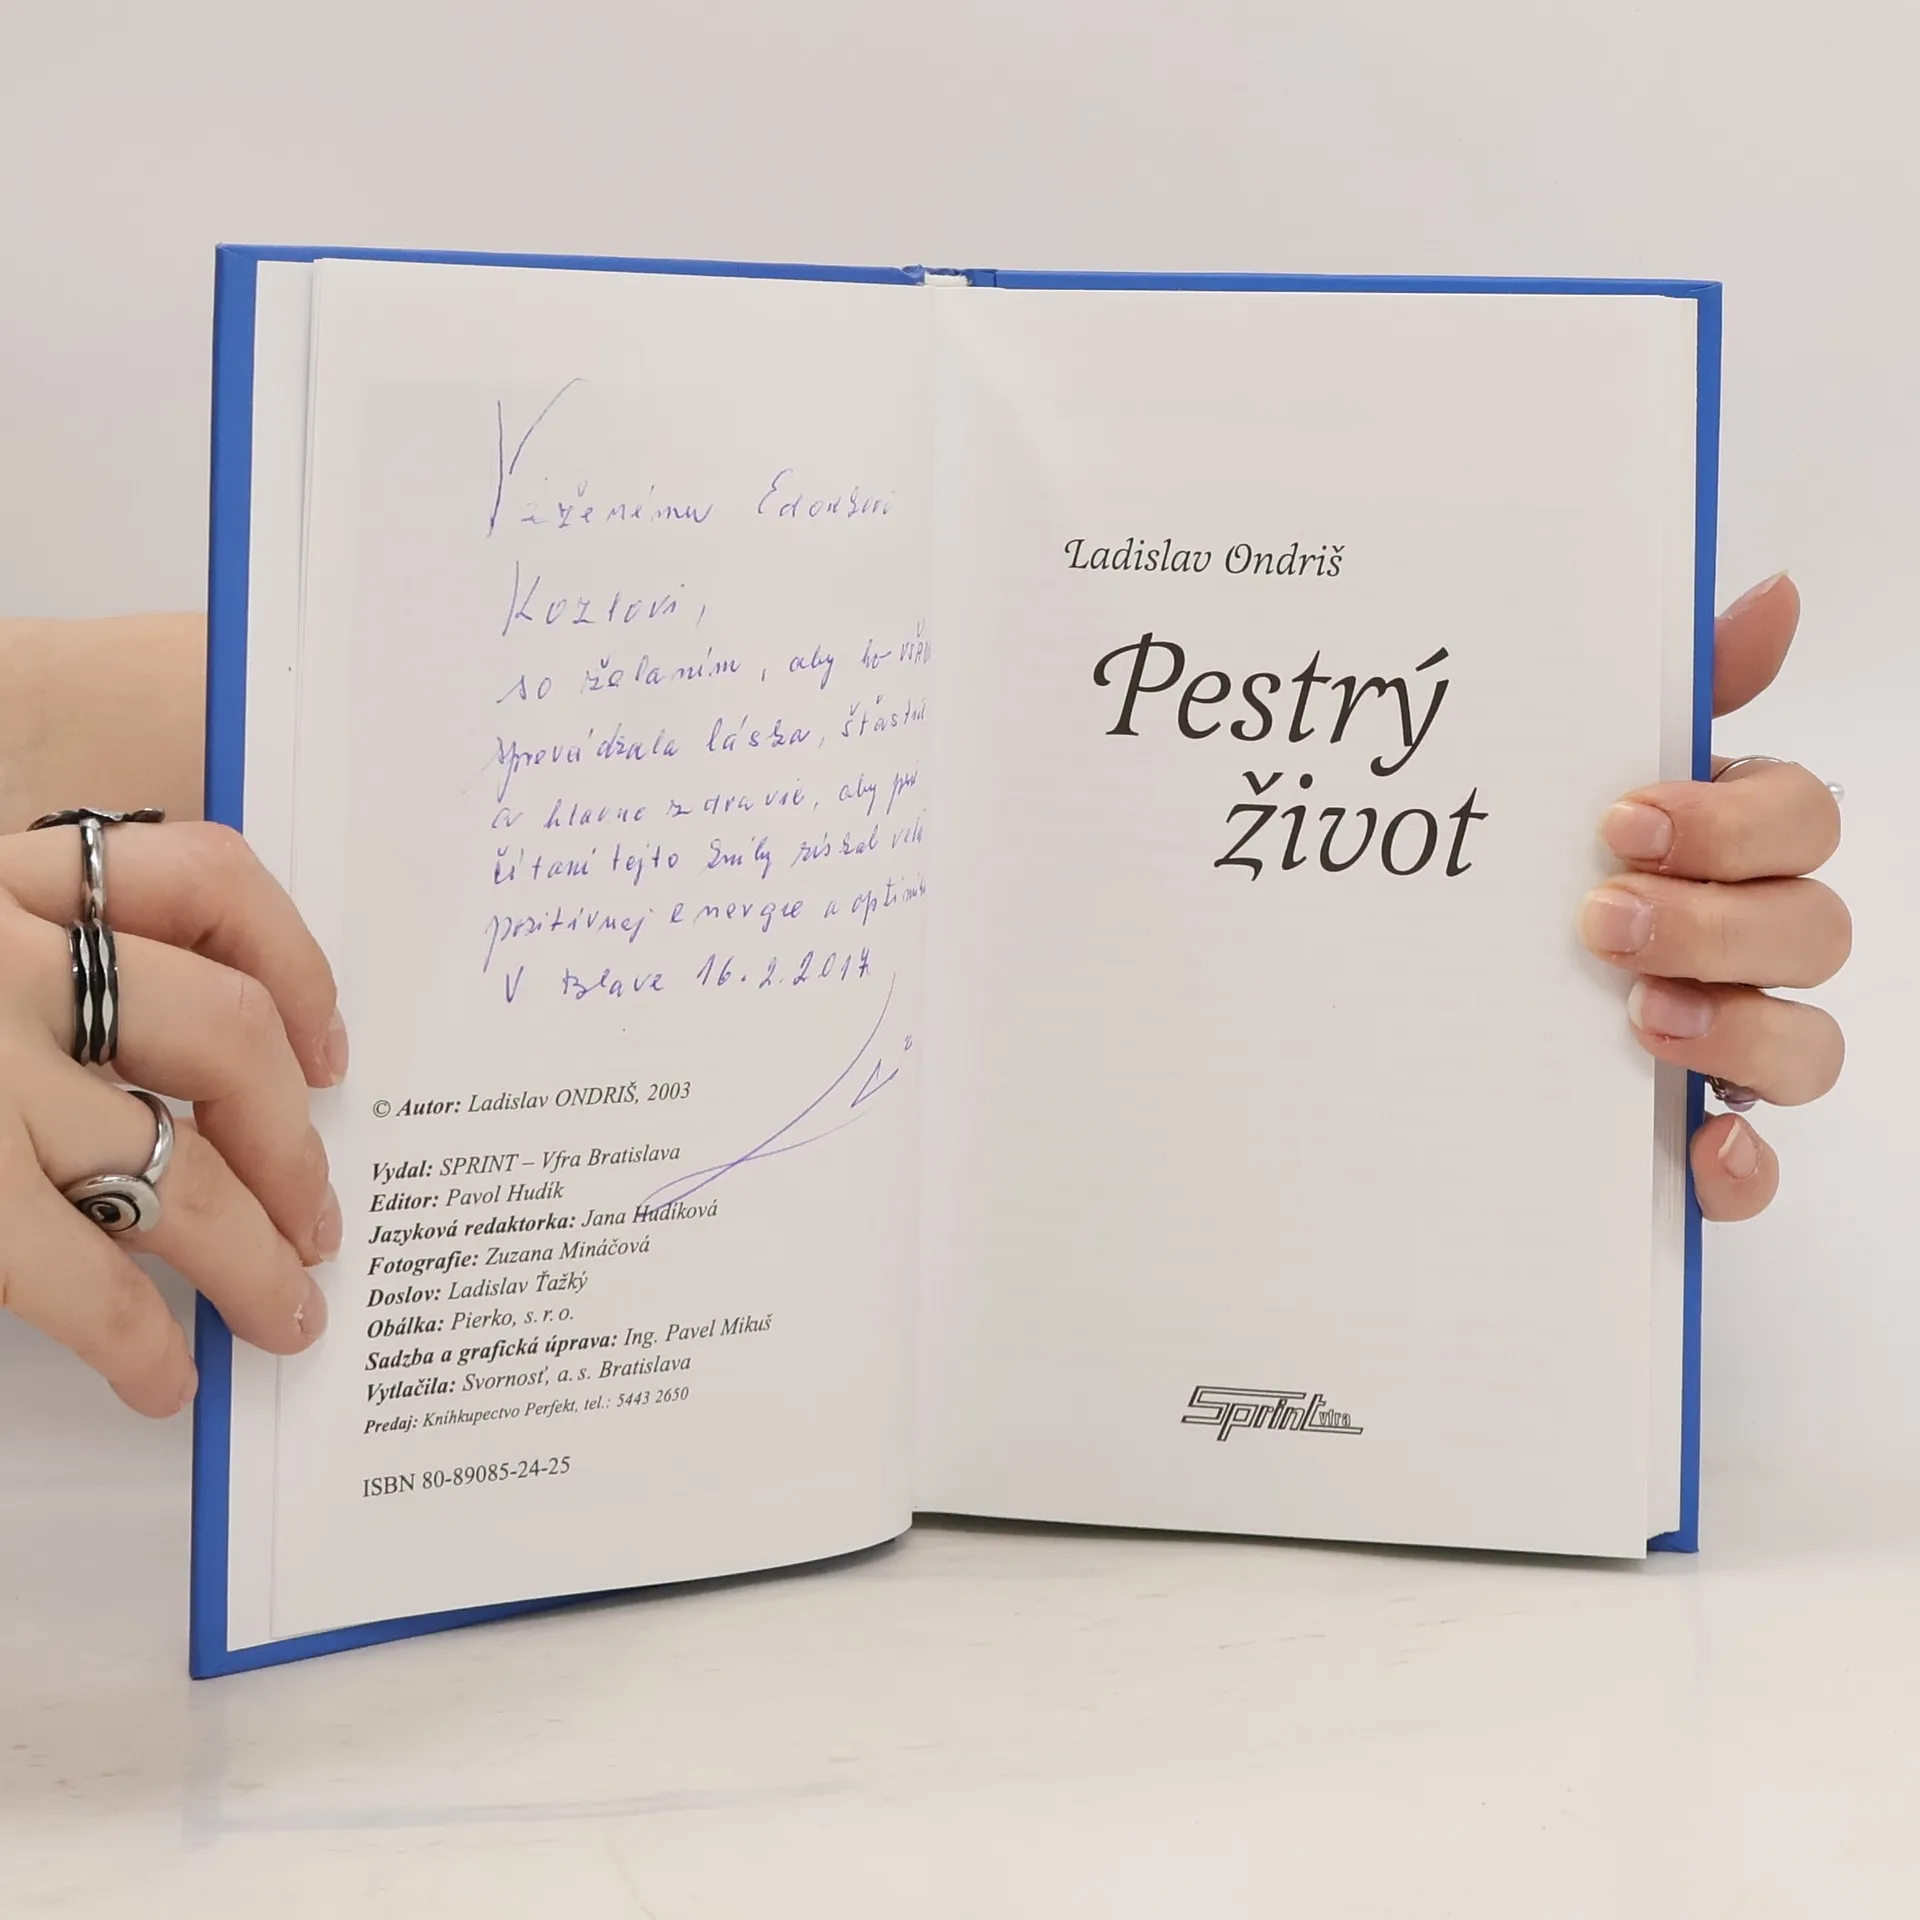 Váženému Edovkovi
Kozlovi,
so želaním, aby ho
sprevádzala láska,
a hlavne zdravie, aby pri
čítaní tejto knihy získal
pozitívnej energie a
V Blave 16.2.2017
© Autor: Ladislav ONDRIŠ, 2003
Vydal: SPRINT – Vfra Bratislava
Editor: Pavol Hudík
Jazyková redaktorka: Jana Hudíková
Fotografie: Zuzana Mináčová
Doslov: Ladislav Ťažký
Obálka: Pierko, s. r. o.
Sadzba a grafická úprava: Ing. Pavel Mikuš
Vytlačila: Svornosť, a. s. Bratislava
Predaj: Kníhkupectvo Perfekt, tel.: 5443 2650
ISBN 80-89085-24-25
Ladislav Ondriš
Pestrý
život
Sprint vfra